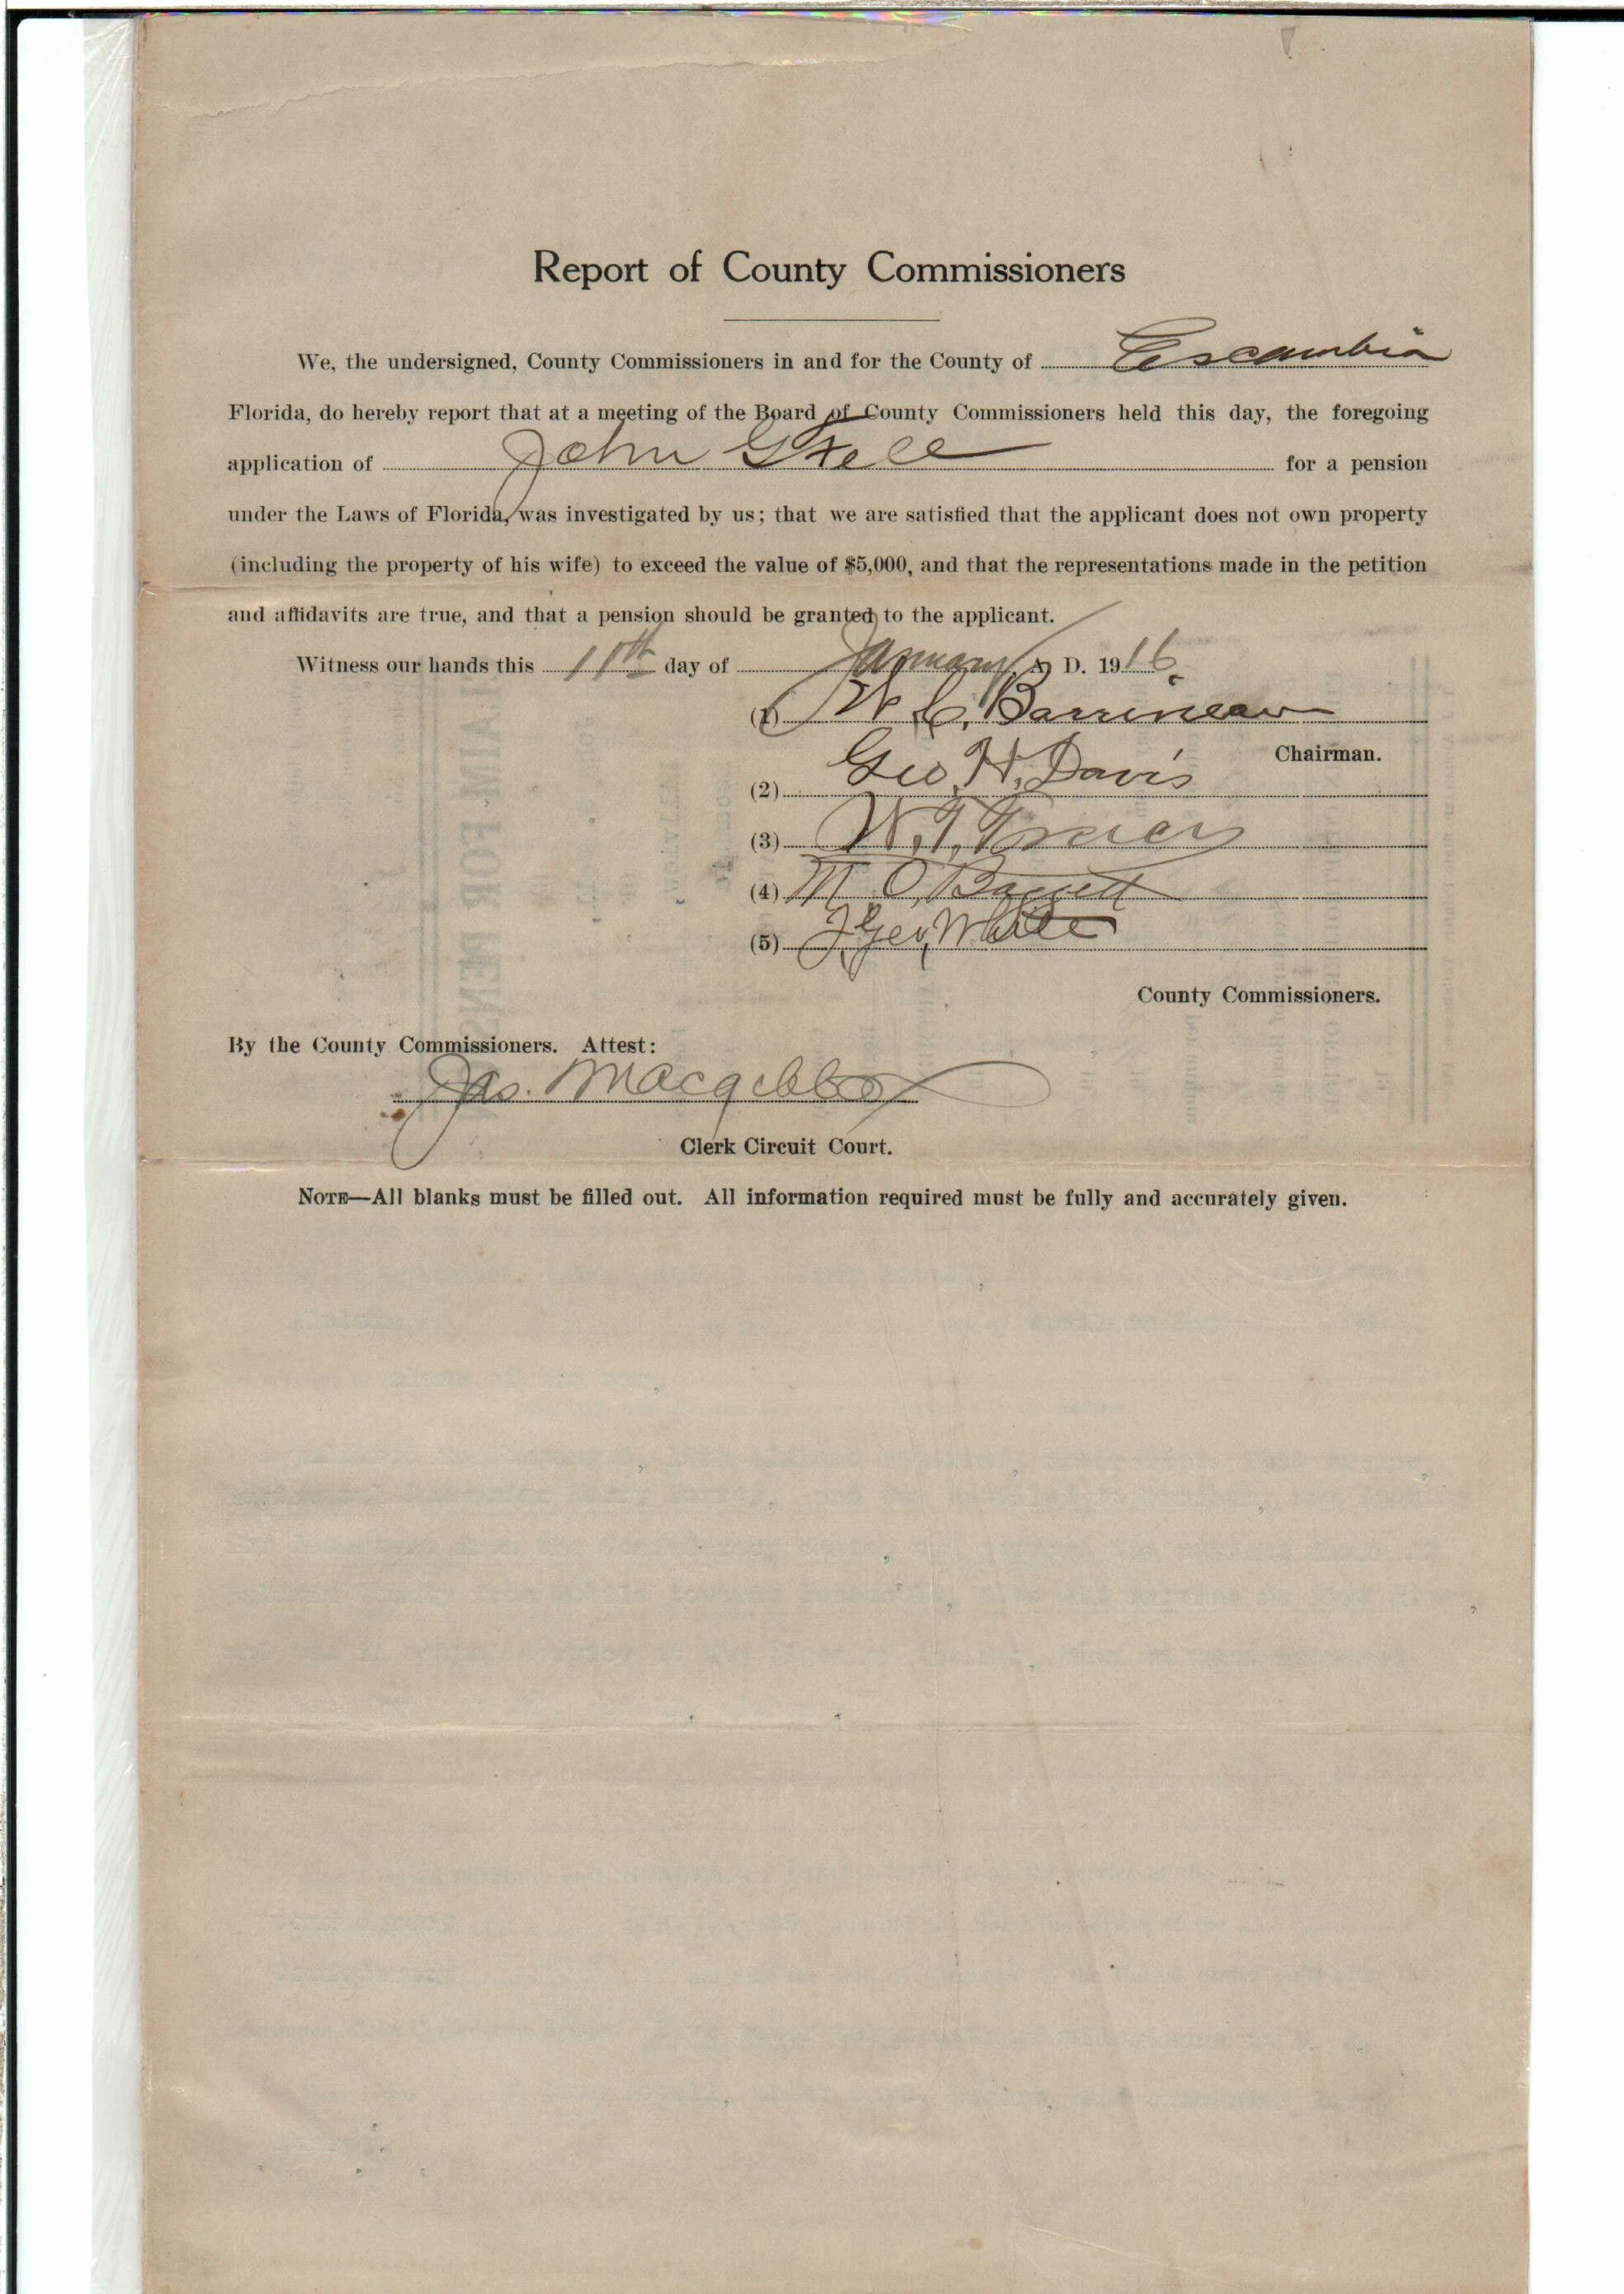 Report of County Commissioners
We, the undersigned, County Commissioners in and for the County of Escambia
Florida, do hereby report that at a meeting of the Board of County Commissioners held this day, the foregoing
application of John Stell for a pension
under the Laws of Florida, was investigated by us; that we are satisfied that the applicant does not own property
(including the property of his wife) to exceed the value of $5,000, and that the representations made in the petition
and affidavits are true, and that a pension should be granted to the applicant.
Witness our hands this 11th day of January A D. 1916
(1) W. C. Barrineau
Chairman.
(2) Geo. H. Davis
(3) W. T.
(4) M. O. Baggett
(5) J. Geo, White
County Commissioners.
By the County Commissioners. Attest:
Jas. Macgibbon
Clerk Circuit Court.
NOTE—All blanks must be filled out. All information required must be fully and accurately given.